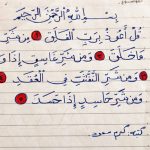 بِسْمِ اللَّهِ الرَّحْمَٰنِ الرَّحِيمِ
قُلْ أَعُوذُ بِرَبِّ الْفَلَقِ ١ مِن شَرِّ
مَا خَلَقَ ٢ وَمِن شَرِّ غَاسِقٍ إِذَا وَقَبَ
٣ وَمِن شَرِّ النَّفَّٰثَٰتِ فِي الْعُقَدِ ٤
وَمِن شَرِّ حَاسِدٍ إِذَا حَسَدَ ٥